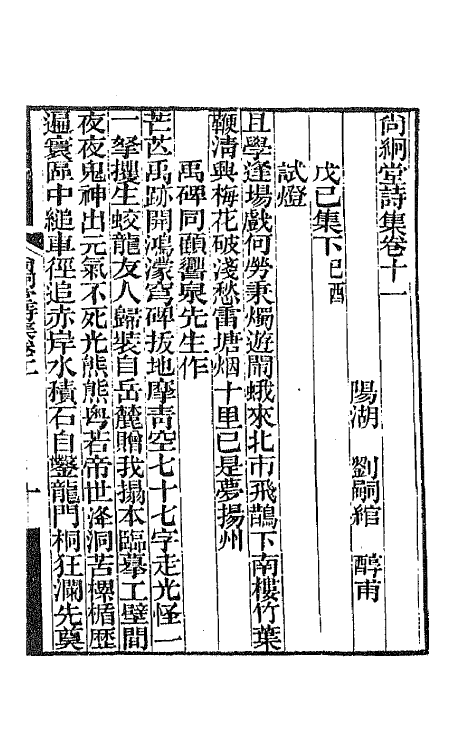 尙絅堂詩集卷十一
陽湖 劉嗣綰 醇甫
戊己集下己酉
試燈
且學逢場戲何勞秉燭遊鬧蛾來北市飛鵲下南樓竹葉
鞭淸興梅花破淺愁雷塘烟十里已是夢揚州
禹碑同頤響泉先生作
芒芒禹跡開鴻濛穹碑拔地摩靑空七十七字走光怪一
一拏攫生蛟龍友人歸裝自岳麓贈我搨本臨摹工壁間
夜夜鬼神出元氣不死光熊熊粤若帝世洚洞苦樏楯歷
遍寰區中縋車徑追赤岸水積石自鑿龍門桐狂瀾先奠